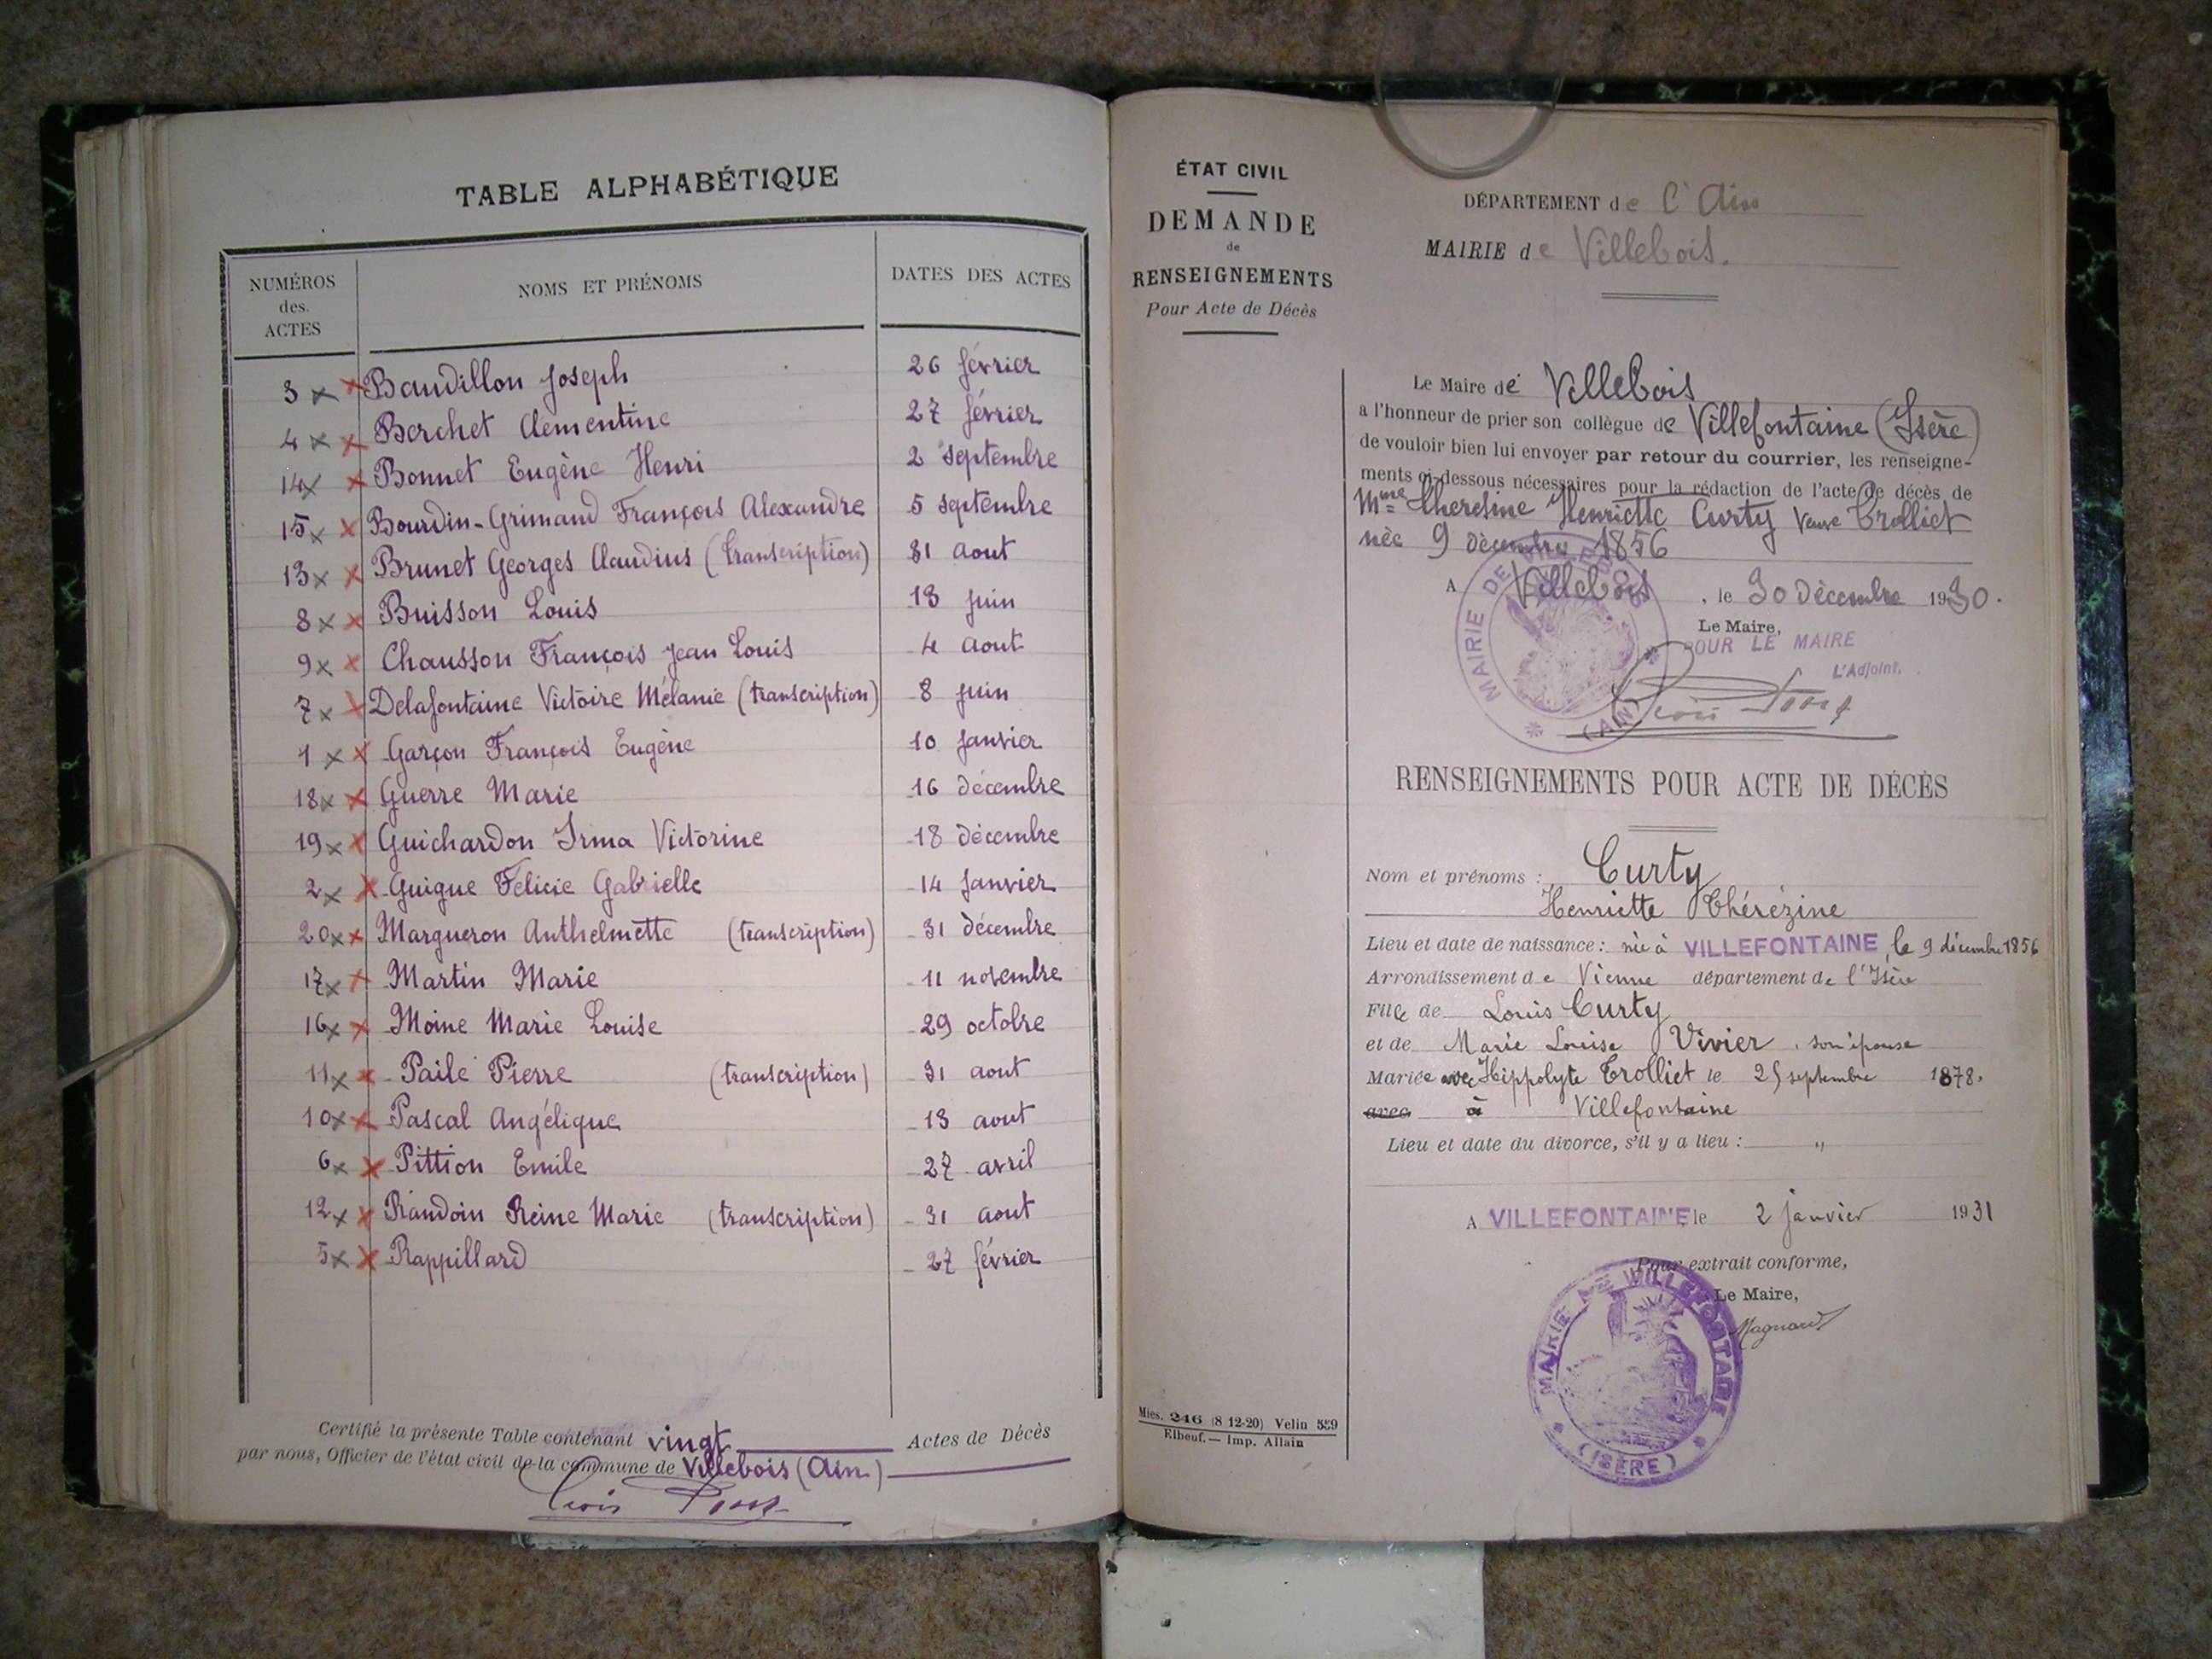 TABLE ALPHABÉTIQUE
NUMÉROS des ACTES NOMS ET PRÉNOMS DATES DES ACTES
3 Baudillon Joseph 26 février
4 Berchet Clementine 27 février
14 Bonnet Eugène Henri 2 septembre
15 Bourdin-Grimaud François Alexandre 5 septembre
13 Brunet Georges Claudius (transcription) 31 aout
8 Buisson Louis 13 juin
9 Chausson François Jean Louis 4 aout
7 Delafontaine Victoire Mélanie (transcription) 8 juin
1 Garçon François Eugène 10 janvier
18 Guerre Marie 16 décembre
19 Guichardon Irma Victorine 18 décembre
2 Guigue Félicie Gabrielle 14 janvier
20 Margueron Anthelmette (transcription) 31 décembre
17 Martin Marie 11 novembre
16 Moine Marie Louise 29 octobre
11 Pailé Pierre (transcription) 31 aout
10 Pascal Angélique 13 aout
6 Pittion Emile 27 avril
12 Raudoin Reine Marie (transcription) 31 aout
5 Rappillard 27 février
Certifié la présente Table contenant vingt Actes de Décès
par nous, Officier de l'état civil de la commune de Villebois (Ain)
ÉTAT CIVIL
DEMANDE
de
RENSEIGNEMENTS
Pour Acte de Décès
Mies. 246 (8 12-20) Velin 559
Elbeuf. — Imp. Allain
DÉPARTEMENT de l'Ain
MAIRIE de Villebois.
Le Maire de Villebois
a l'honneur de prier son collègue de Villefontaine (Isère)
de vouloir bien lui envoyer par retour du courrier, les renseigne-
ments ci-dessous nécessaires pour la rédaction de l'acte de décès de
Mme Theresine Henriette Curty Veuve Trolliet
née 9 décembre 1856
A Villebois, le 30 Décembre 1930.
Le Maire,
POUR LE MAIRE
L'Adjoint,
MAIRIE DE (AIN)
RENSEIGNEMENTS POUR ACTE DE DÉCÈS
Nom et prénoms : Curty
Henriette Thérézine
Lieu et date de naissance : née à VILLEFONTAINE, le 9 décembre 1856
Arrondissement de Vienne département de l'Isère
Fille de Louis Curty
et de Marie Louise Vivier, son épouse
Mariée avec Hippolyte Trolliet le 25 septembre 1878.
avec à Villefontaine
Lieu et date du divorce, s'il y a lieu : "
A VILLEFONTAINE le 2 janvier 1931
Pour extrait conforme,
Le Maire,
Magnard
MAIRIE DE VILLEFONTAINE (ISÈRE)